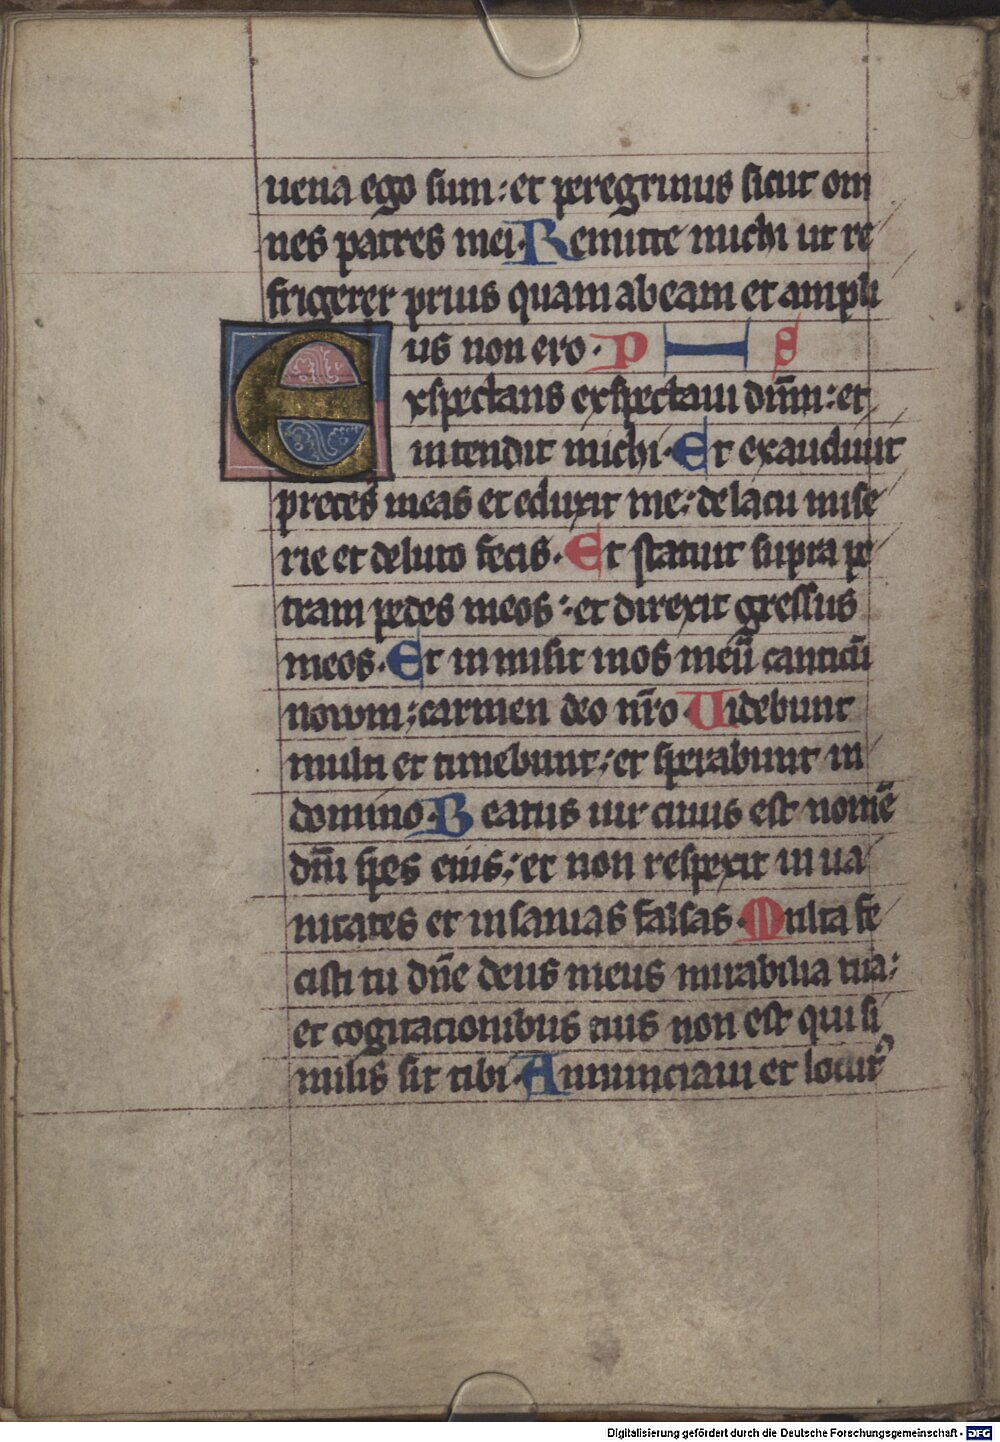 uena ego sum: et peregrinus sicut om
nes patres mei. Remitte michi ut re
frigerer prius quam abeam et ampli
us non ero. P S
Exspectans exspectaui dn̄m: et
intendit michi. Et exaudiuit
preces meas et eduxit me: de lacu mise
rie et de luto fecis. Et statuit supra pe
tram pedes meos: et direxit gressus
meos. Et inmisit in os meū canticū
nouum: carmen deo nr̄o. Uidebunt
multi et timebunt: et sperabunt in
domino. Beatus uir cuius est nomē
dn̄i spes eius: et non respexit in ua
nitates et insanias falsas. Multa fe
cisti tu dn̄e deus meus mirabilia tua:
et cogitacionibus tuis non est qui si
milis sit tibi. Annunciaui et locutꝰ
Digitalisierung gefördert durch die Deutsche Forschungsgemeinschaft - DFG